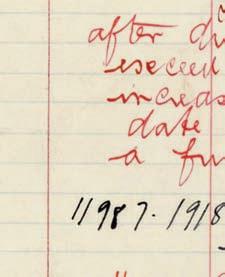 after d
exceed
increas
date
a fu
11987.1918
"